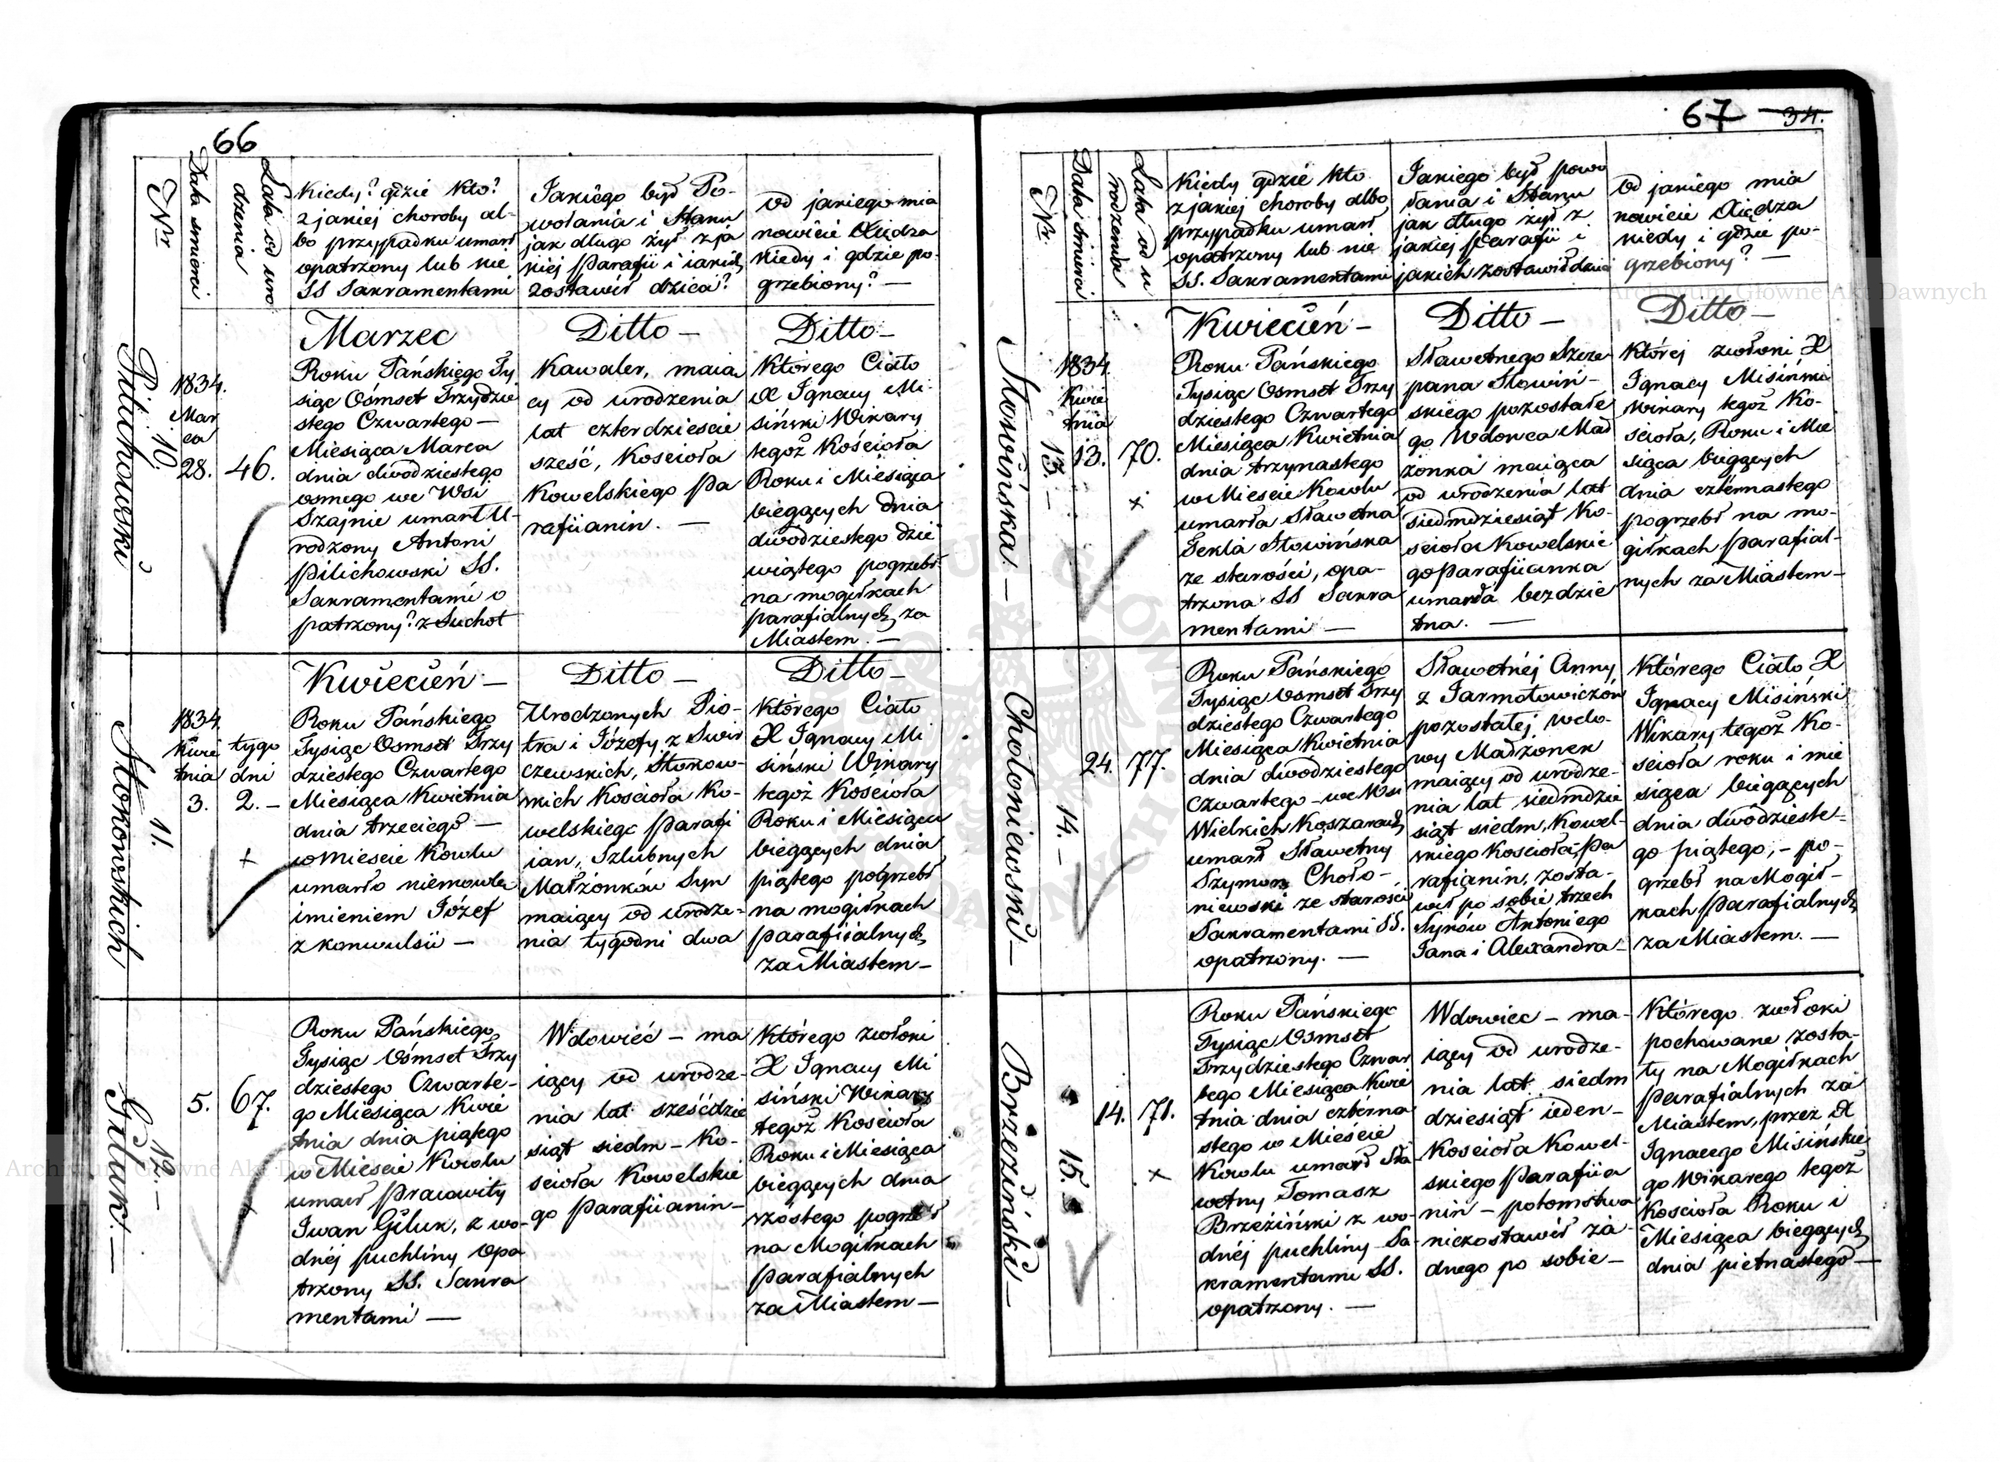 66
Nr
Data smierci
Lata od uro
dzenia
Kiedy? gdzie kto?
z jakiej choroby al-
bo przypadku umarł
opatrzony lub nie
SS Sakramentami
Jakiego był Po-
wołania i Stanu
jak długo żył z ja
kiej Parafii i iakich
zostawił dzieci?
od jakiego mia
nowicie Xiędza
kiedy i gdzie po-
grzebiony? —
Pilichowski
10.
1834.
Mar
ca
28.
46.
Marzec
Roku Pańskiego Ty
siąc Ośmset Trzydzie
stego Czwartego —
Miesiąca Marca
dnia dwódziestego
osmego we Wsi
Szajnie umarł U-
rodzony Antoni
Pilichowski SS.
Sakramentami o
patrzony? z Suchot
Ditto —
Kawaler, maią
cy od urodzenia
lat czterdzieście
sześć, Kościoła
Kowelskiego Pa
rafiianin. —
Ditto —
Którego Ciało
X Ignacy Mi
siński Wikary
tegoż Kościoła
Roku i Miesiąca
bieżących dnia
dwódziestego dzie
wiątego pogrzebł
na mogiłkach
parafialnych za
Miastem. —
Stokowskich
11.
1834
Kwie
tnia
3.
tygo
dni
2. —
+
Kwiecień —
Roku Pańskiego
Tysiąc Osmset Trzy
dziestego Czwartego
Miesiąca Kwietnia
dnia trzeciego —
w Miescie Kowlu
umarło niemowle
imieniem Józef
z konwulsii —
Ditto —
Urodzonych Pio-
tra i Józefy z Swir
czewskich, Stokow-
skich Kościoła Ko-
welskiego Parafi
ian, Szlubnych
Małżonków Syn
maiący od urodze-
nia tygodni dwa
Ditto —
Którego Ciało
X Ignacy Mi
siński Wikary
tegoż Kościoła
Roku i Miesiąca
bieżących dnia
piątego pogrzebł
na mogiłkach
parafiialnych
za Miastem —
Giluk. —
12. —
5.
67.
Roku Pańskiego
Tysiąc Ośmset Trzy
dziestego Czwarte-
go Miesiąca Kwie
tnia dnia piątego
w Miescie Kowlu
umarł Pracowity
Iwan Giluk, z wo-
dnéj puchliny opa
trzony SS. Sakra
mentami —
Wdowiéc — ma
iący od urodze-
nia lat sześćdzie
siąt siedm — Ko-
scioła Kowelskie
go Parafiianin —
Którego zwłoki
X Ignacy Mi
siński Wikary
tegoż Kościoła
Roku i Miesiąca
bieżących dnia
szóstego pogrzebł
na Mogiłkach
Parafialnych
za Miastem —
67 34.
Nr.
Data śmierci
Lata od u
rodzenia
Kiedy gdzie kto
z jakiej choroby albo
przypadku umarł
opatrzony lub nie
SS. Sakramentami
Jakiego był powo
łania i Stanu
jak długo żył z
jakiej Parafii i
jakich zostawił dzieci
od jakiego mia
nowicie Xiędza
kiedy i gdzie po-
grzebiony? —
Słowińska. —
13. —
1834
Kwie
tnia
13.
70.
+
Kwiecień —
Roku Pańskiego
Tysiąc Osmset Trzy
dziestego Czwartego
Miesiąca Kwietnia
dnia trzynastego
w Miescie Kowlu
umarła Sławetna
Tekla Słowińska
ze starości, opa-
trzona SS Sakra
mentami —
Ditto —
Sławetnego Szcze
pana Słowiń-
skiego pozostałe
go Wdowca Mał
żonka maiąca
od urodzenia lat
siedmdziesiąt Ko-
scioła Kowelskie
go Parafiianka
umarła bezdzie
tna. —
Ditto —
Której zwłoki X
Ignacy Misiński
Wikary tegoż Ko-
scioła, Roku i Mie
siąca bieżących
dnia czternastego
pogrzebł na mo-
giłkach Parafial-
nych za Miastem —
Chołoniewski —
14. —
24.
77.
Roku Pańskiego
Tysiąc Osmset Trzy
dziestego Czwartego
Miesiąca Kwietnia
dnia dwodziestego
Czwartego — we Wsi
Wielkich Koszarach
umarł Sławetny
Szymon Choło-
niewski ze starości
Sakramentami SS.
opatrzony. —
Sławetnéj Anny
z Jarmołowiczów
pozostałej wdo-
wy Małżonek
maiący od urodze-
nia lat siedmdzie
siąt siedm, Kowel-
skiego Kościoła, Pa
rafianin, zosta-
wił po sobie trzech
Synów Antoniego
Jana i Alexandra —
Którego Ciało X
Ignacy Misiński
Wikary tegoż Ko-
scioła roku i mie
siąca bieżących
dnia dwódzieste-
go piątego, — po-
grzebł na Mogił-
kach Parafialnych
za Miastem. —
Brzeziński —
15.
14.
71.
+
Roku Pańskiego
Tysiąc Osmset
Trzydziestego Czwar
tego Miesiąca Kwie
tnia dnia czterna
stego w Mieście
Kowlu umarł Sła
wetny Tomasz
Brzeziński z wo-
dnéj puchliny Sa-
kramentami SS.
opatrzony. —
Wdowiec — ma-
iący od urodze-
nia lat siedm
dziesiąt ieden —
Kościoła Kowel-
skiego Parafiia
nin — potomstwa
niezostawił ża-
dnego po sobie —
Którego zwłoki
pochowane zosta-
ły na Mogiłkach
Parafialnych za
Miastem, przez X
Ignacego Misińskie
go Wikarego tegoż
Kościoła Roku i
Miesiąca bieżących
dnia piétnastego —
Archiwum Główne Akt Dawnych
Archiwum Główne Akt Dawnych